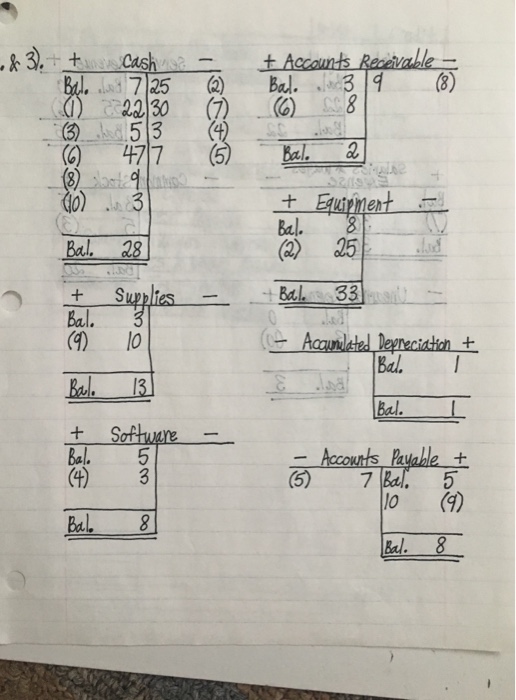 . & 3).
+ Cash -
Bal. 7 25 (2)
(1) 22 30 (7)
(3) 5 3 (4)
(6) 47 7 (5)
(8) 9
(10) 3
Bal. 28
+ Supplies -
Bal. 3
(9) 10
Bal. 13
+ Software -
Bal. 5
(4) 3
Bal. 8
+ Accounts Receivable -
Bal. 3 9 (8)
(6) 8
Bal. 2
+ Equipment -
Bal. 8
(2) 25
Bal. 33
- Accumulated Depreciation +
Bal. 1
Bal. 1
- Accounts Payable +
(5) 7 Bal. 5
10 (9)
Bal. 8